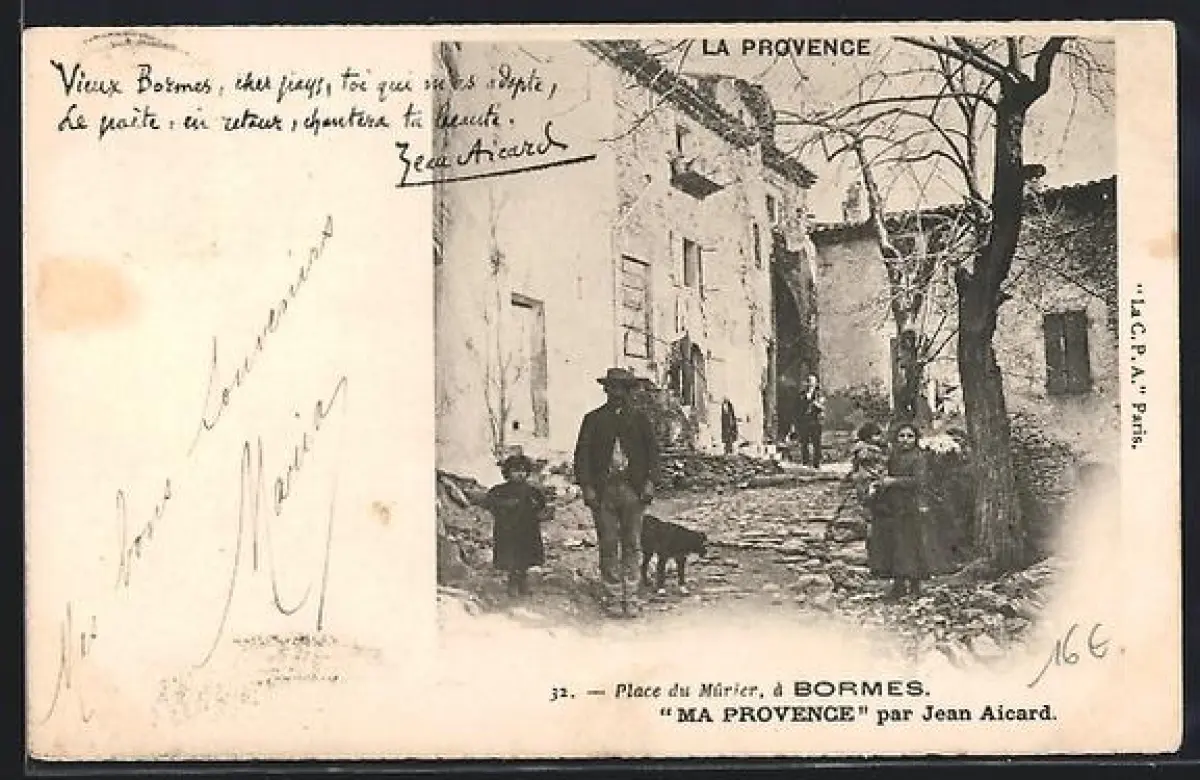 LA PROVENCE
Vieux Bormes, cher pays, toi qui m'as adopté,
Le poète, en retour, chantera ta beauté.
Jean Aicard
Mes bons Souvenirs
Maria
"La C. P. A." Paris.
16€
32. — Place du Mûrier, à BORMES.
"MA PROVENCE" par Jean Aicard.